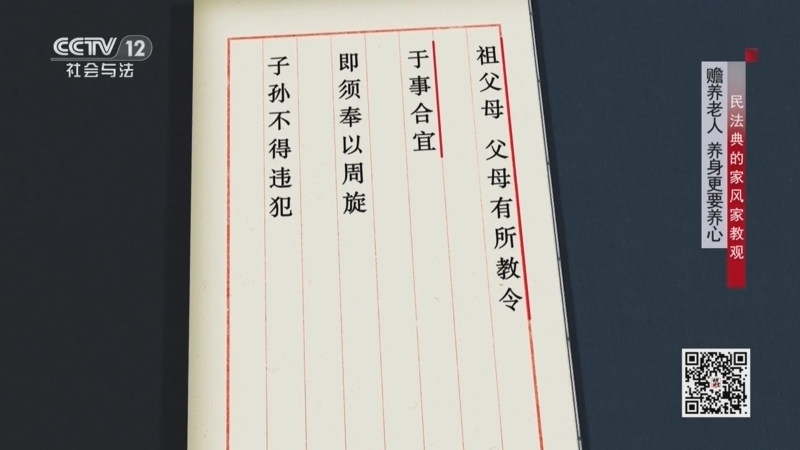 CCTV 12
社会与法
祖父母 父母有所教令
于事合宜
即须奉以周旋
子孙不得违犯
民法典的家风家教观
赡养老人 养身更要养心